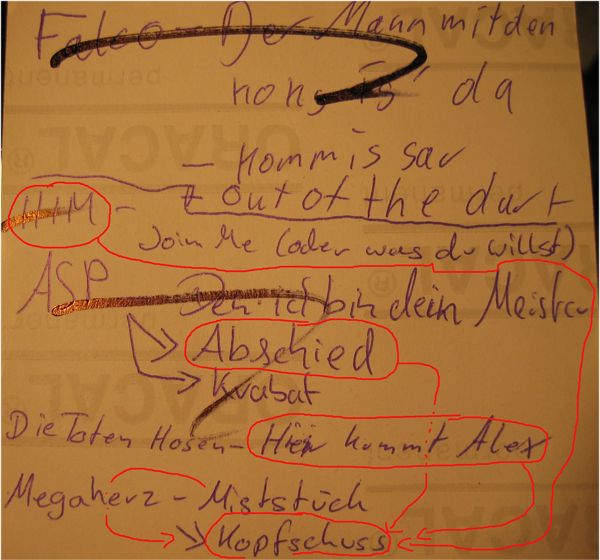 Falco - Der Mann mit den
is' da
- Kommissar
- Out of the dark
HIM -
Join Me (oder was du willst)
ASP - Denn ich bin dein Meister
Abschied
Krabat
Die Toten Hosen - Hier kommt Alex
Megaherz - Miststück
Kopfschuss
ORACAL®
permanent
ORACAL®
permanent
ORACAL®